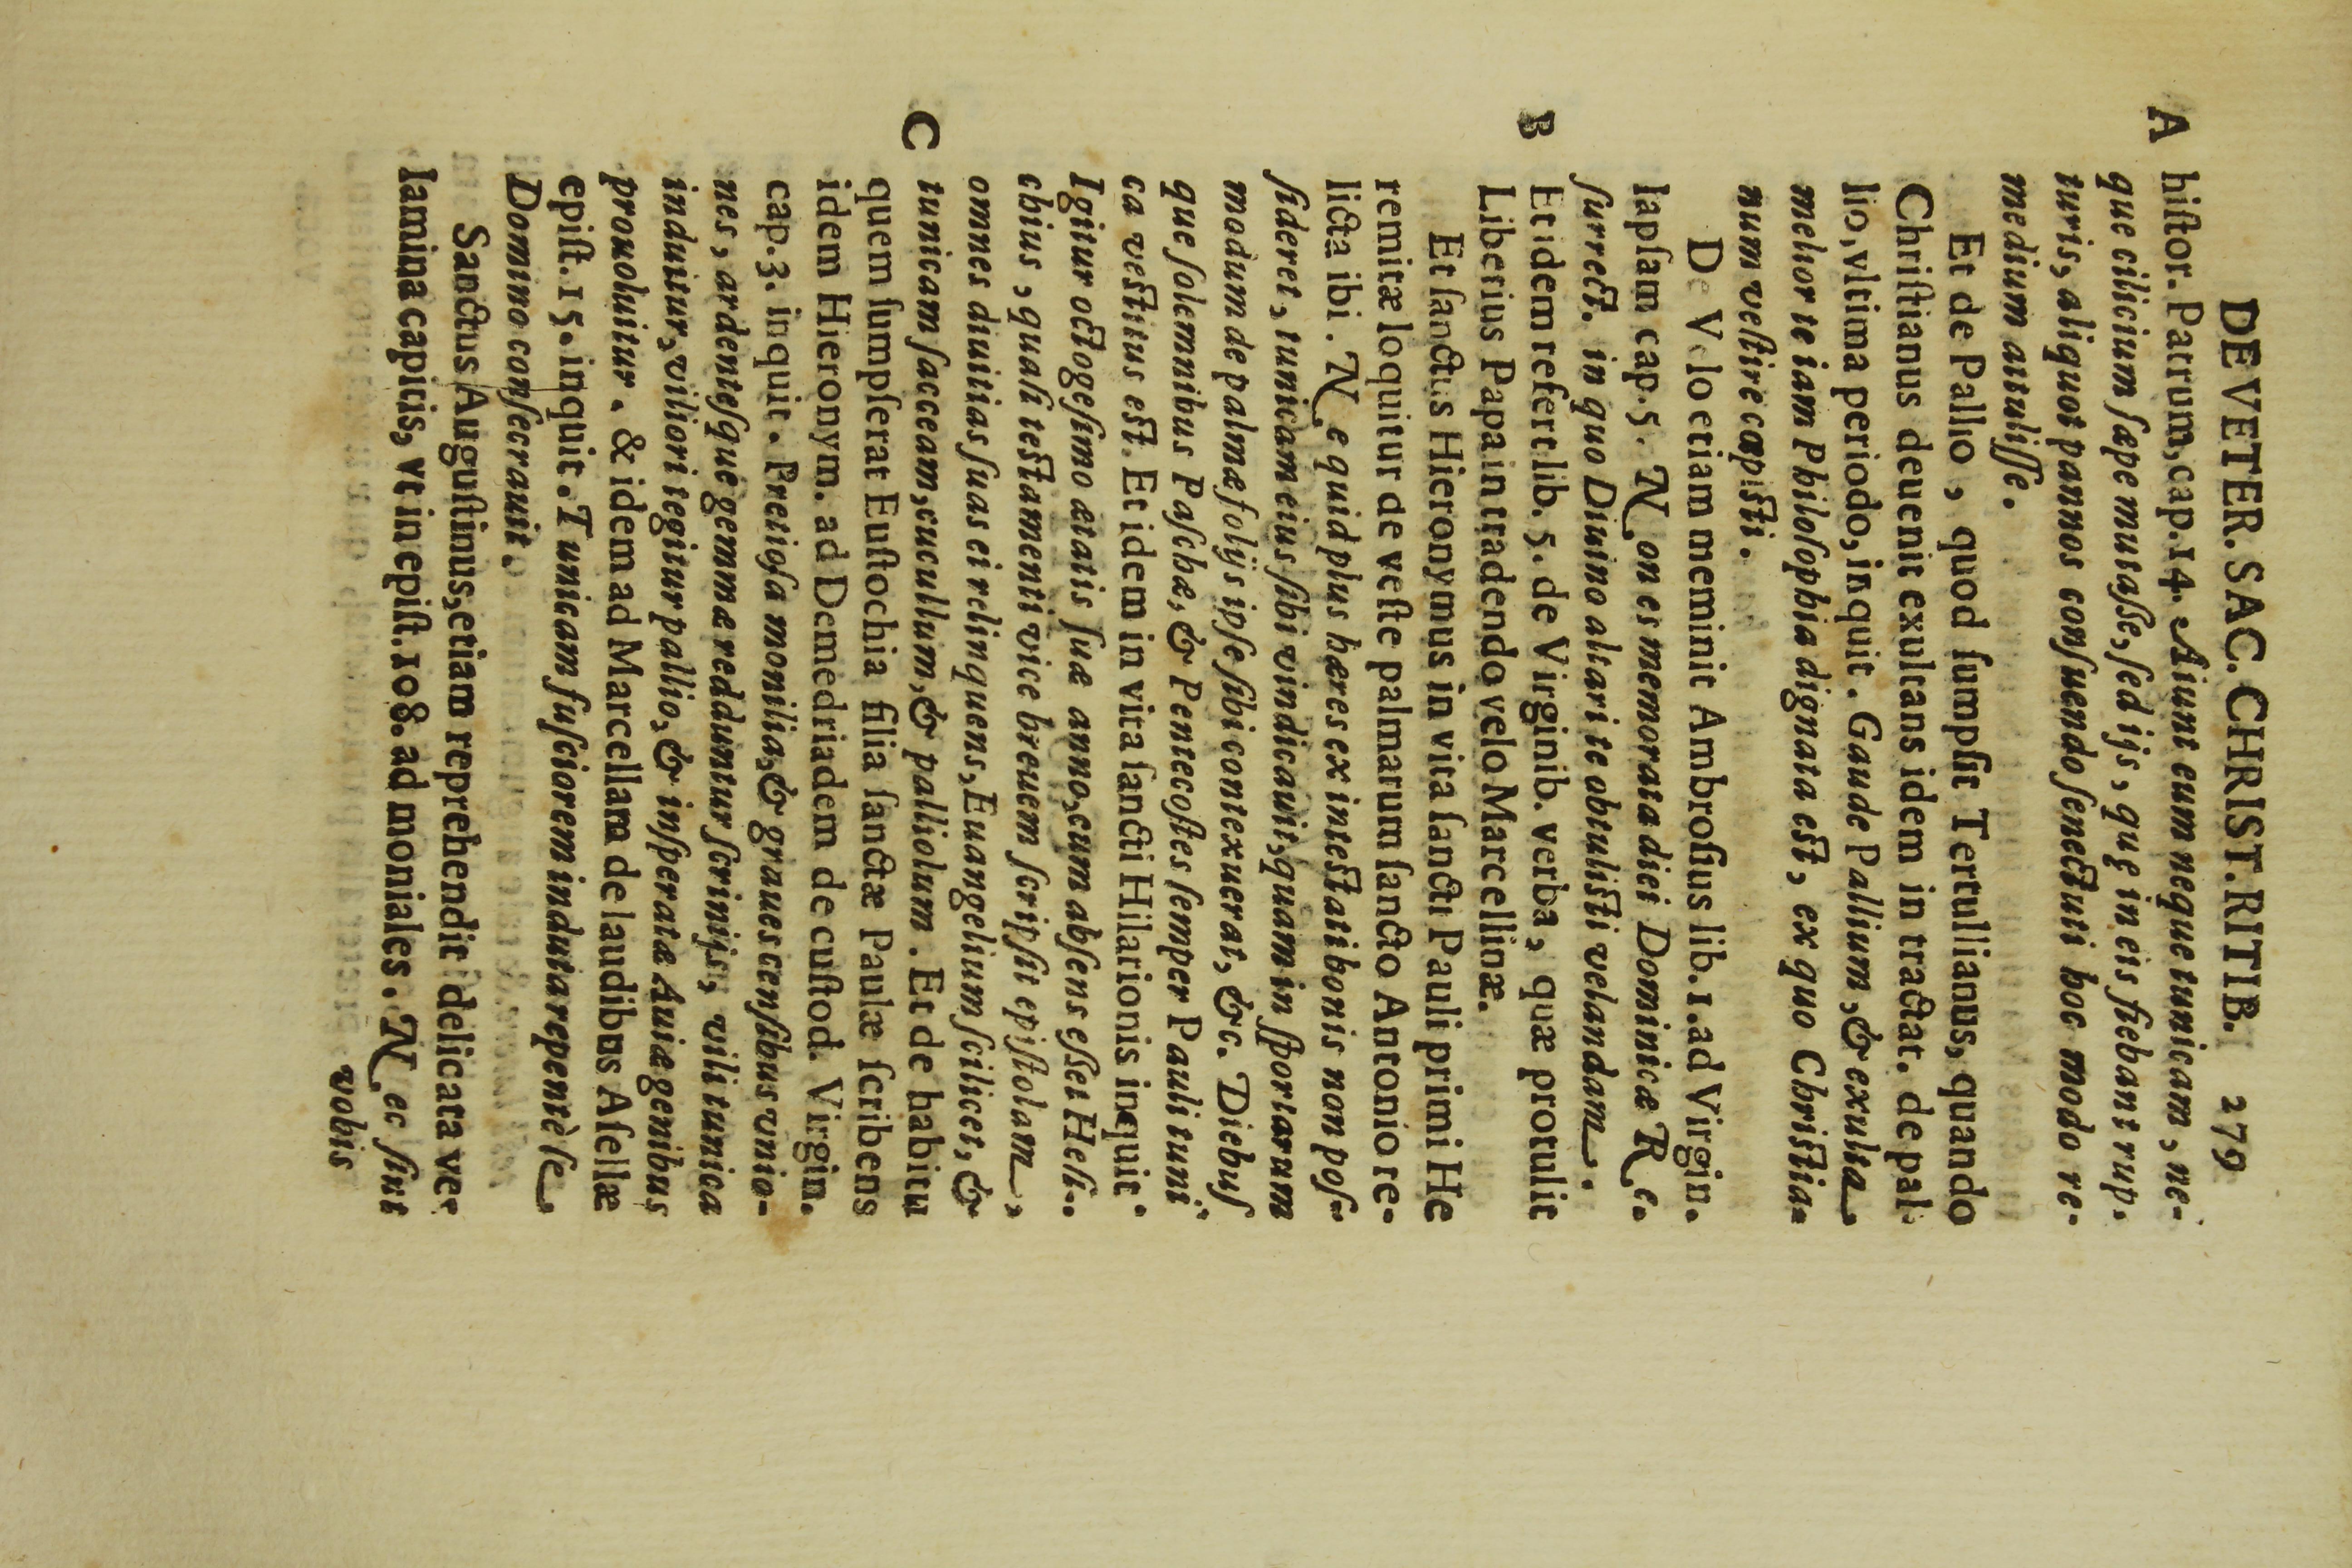 DE VETER. SAC. CHRIST. RITIB. 279
A hiſtor. Patrum, cap. 14. Aiunt eum neque tunicam, ne-
que cilicium ſæpe mutaſſe, ſed ijs, quę in eis fiebant rup.
turis, aliquot pannos conſuendo ſenectuti hoc modo re-
medium attuliſſe.
Et de Pallio, quod ſumpſit Tertullianus, quando
Chriſtianus deuenit exultans idem in tractat. de pal-
lio, vltima periodo, inquit. Gaude Pallium, & exulta
melior te iam Philoſophia dignata eſt, ex quo Chriſtia-
num veſtire cœpiſti.
De Velo etiam meminit Ambroſius lib. 1. ad Virgin.
lapſam cap. 5. Non es memorata diei Dominicæ Re.
ſurrect. in quo Diuino altari te obtuliſti velandam.
B Et idem refert lib. 5. de Virginib. verba, quæ protulit
Liberius Papa in tradendo velo Marcellinæ.
Et ſanctus Hieronymus in vita ſancti Pauli primi He
remitæ loquitur de veſte palmarum ſancto Antonio re-
licta ibi. Ne quid plus hæres ex inteſtati bonis non poſ-
ſideret, tunicam eius ſibi vindicauit, quam in ſportarum
modum de palmæ folijs ipſe ſibi contexuerat, &c. Diebuſ
que ſolemnibus Paſchæ, & Pentecoſtes ſemper Pauli tuni
ca veſtitus eſt. Et idem in vita ſancti Hilarionis inquit.
Igitur octogeſimo ætatis ſuæ anno, cum abſens eſſet Heſi-
chius, quaſi teſtamenti vice breuem ſcripſit epiſtolam,
omnes diuitias ſuas ei relinquens, Euangelium ſcilicet, &
C tunicam ſacceam, cucullum, & palliolum. Et de habitu
quem ſumpſerat Euſtochia filia ſanctæ Paulæ ſcribens
idem Hieronym. ad Demedriadem de cuſtod. Virgin.
cap. 3. inquit. Pretioſa monilia, & graues cenſibus vnio-
nes, ardenteſque gemmæ redduntur ſcrinijs, vili tunica
induitur, viliori tegitur pallio, & inſperatæ Auiæ genibus
prouoluitur. & idem ad Marcellam de laudibus Aſellæ
epiſt. 15. inquit. Tunicam fuſciorem induta repentè ſe
Domino conſecrauit.
Sanctus Auguſtinus, etiam reprehendit delicata ve-
lamina capitis, vt in epiſt. 108. ad moniales. Nec ſint
vobis